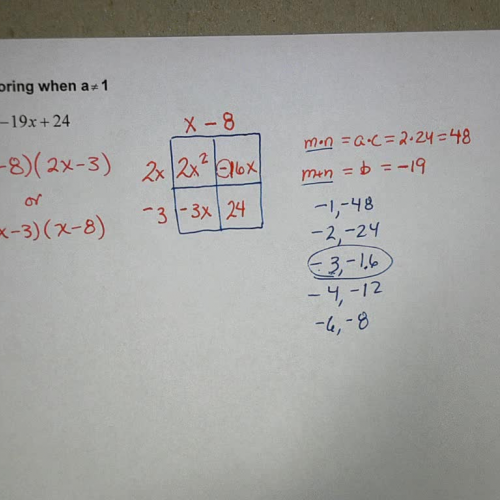 oring when a≠1
-19x+24
-8)(2x-3)
or
x-3)(x-8)
x - 8
2x 2x² -16x
-3 -3x 24
m·n = a·c = 2·24 = 48
m+n = b = -19
-1, -48
-2, -24
-3, -16
-4, -12
-6, -8